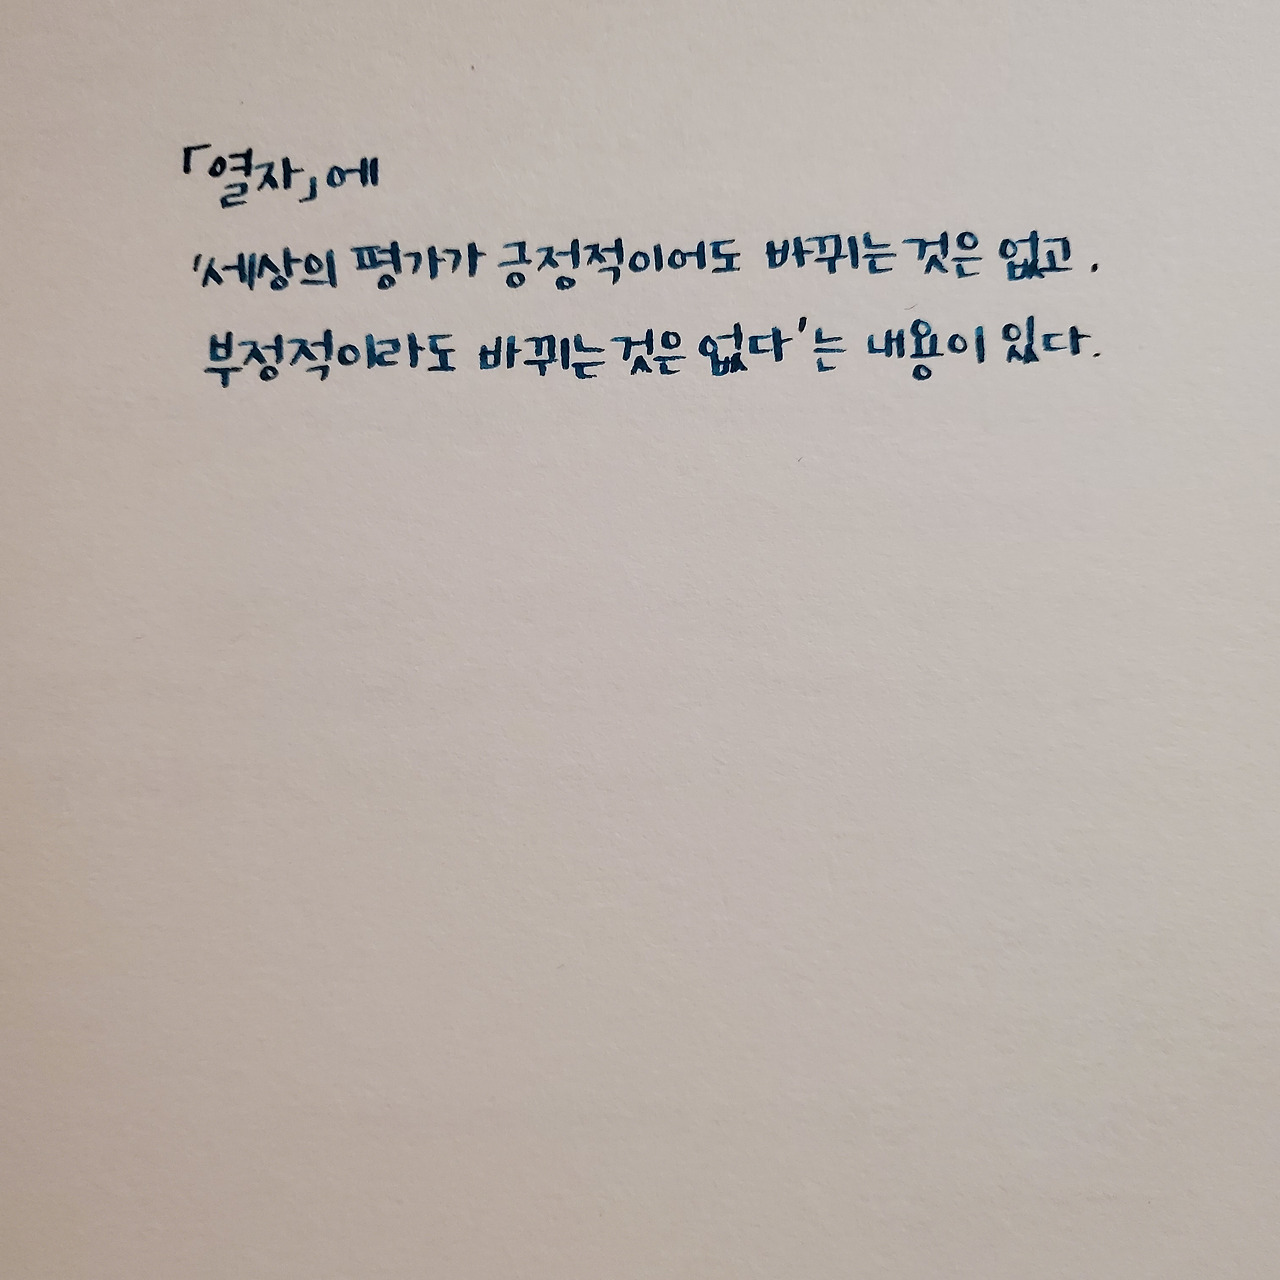 「열자」에
'세상의 평가가 긍정적이어도 바뀌는 것은 없고.
부정적이라도 바뀌는 것은 없다'는 내용이 있다.